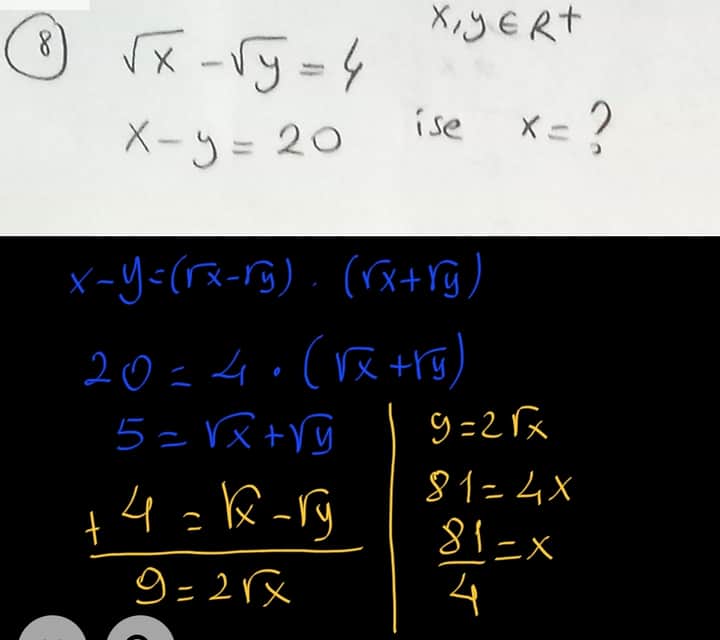 8) √x - √y = 4    x,y ∈ R+
x - y = 20    ise    x = ?
x - y = (√x - √y) . (√x + √y)
20 = 4 . (√x + √y)
5 = √x + √y
+ 4 = √x - √y
9 = 2√x
9 = 2√x
81 = 4x
81/4 = x